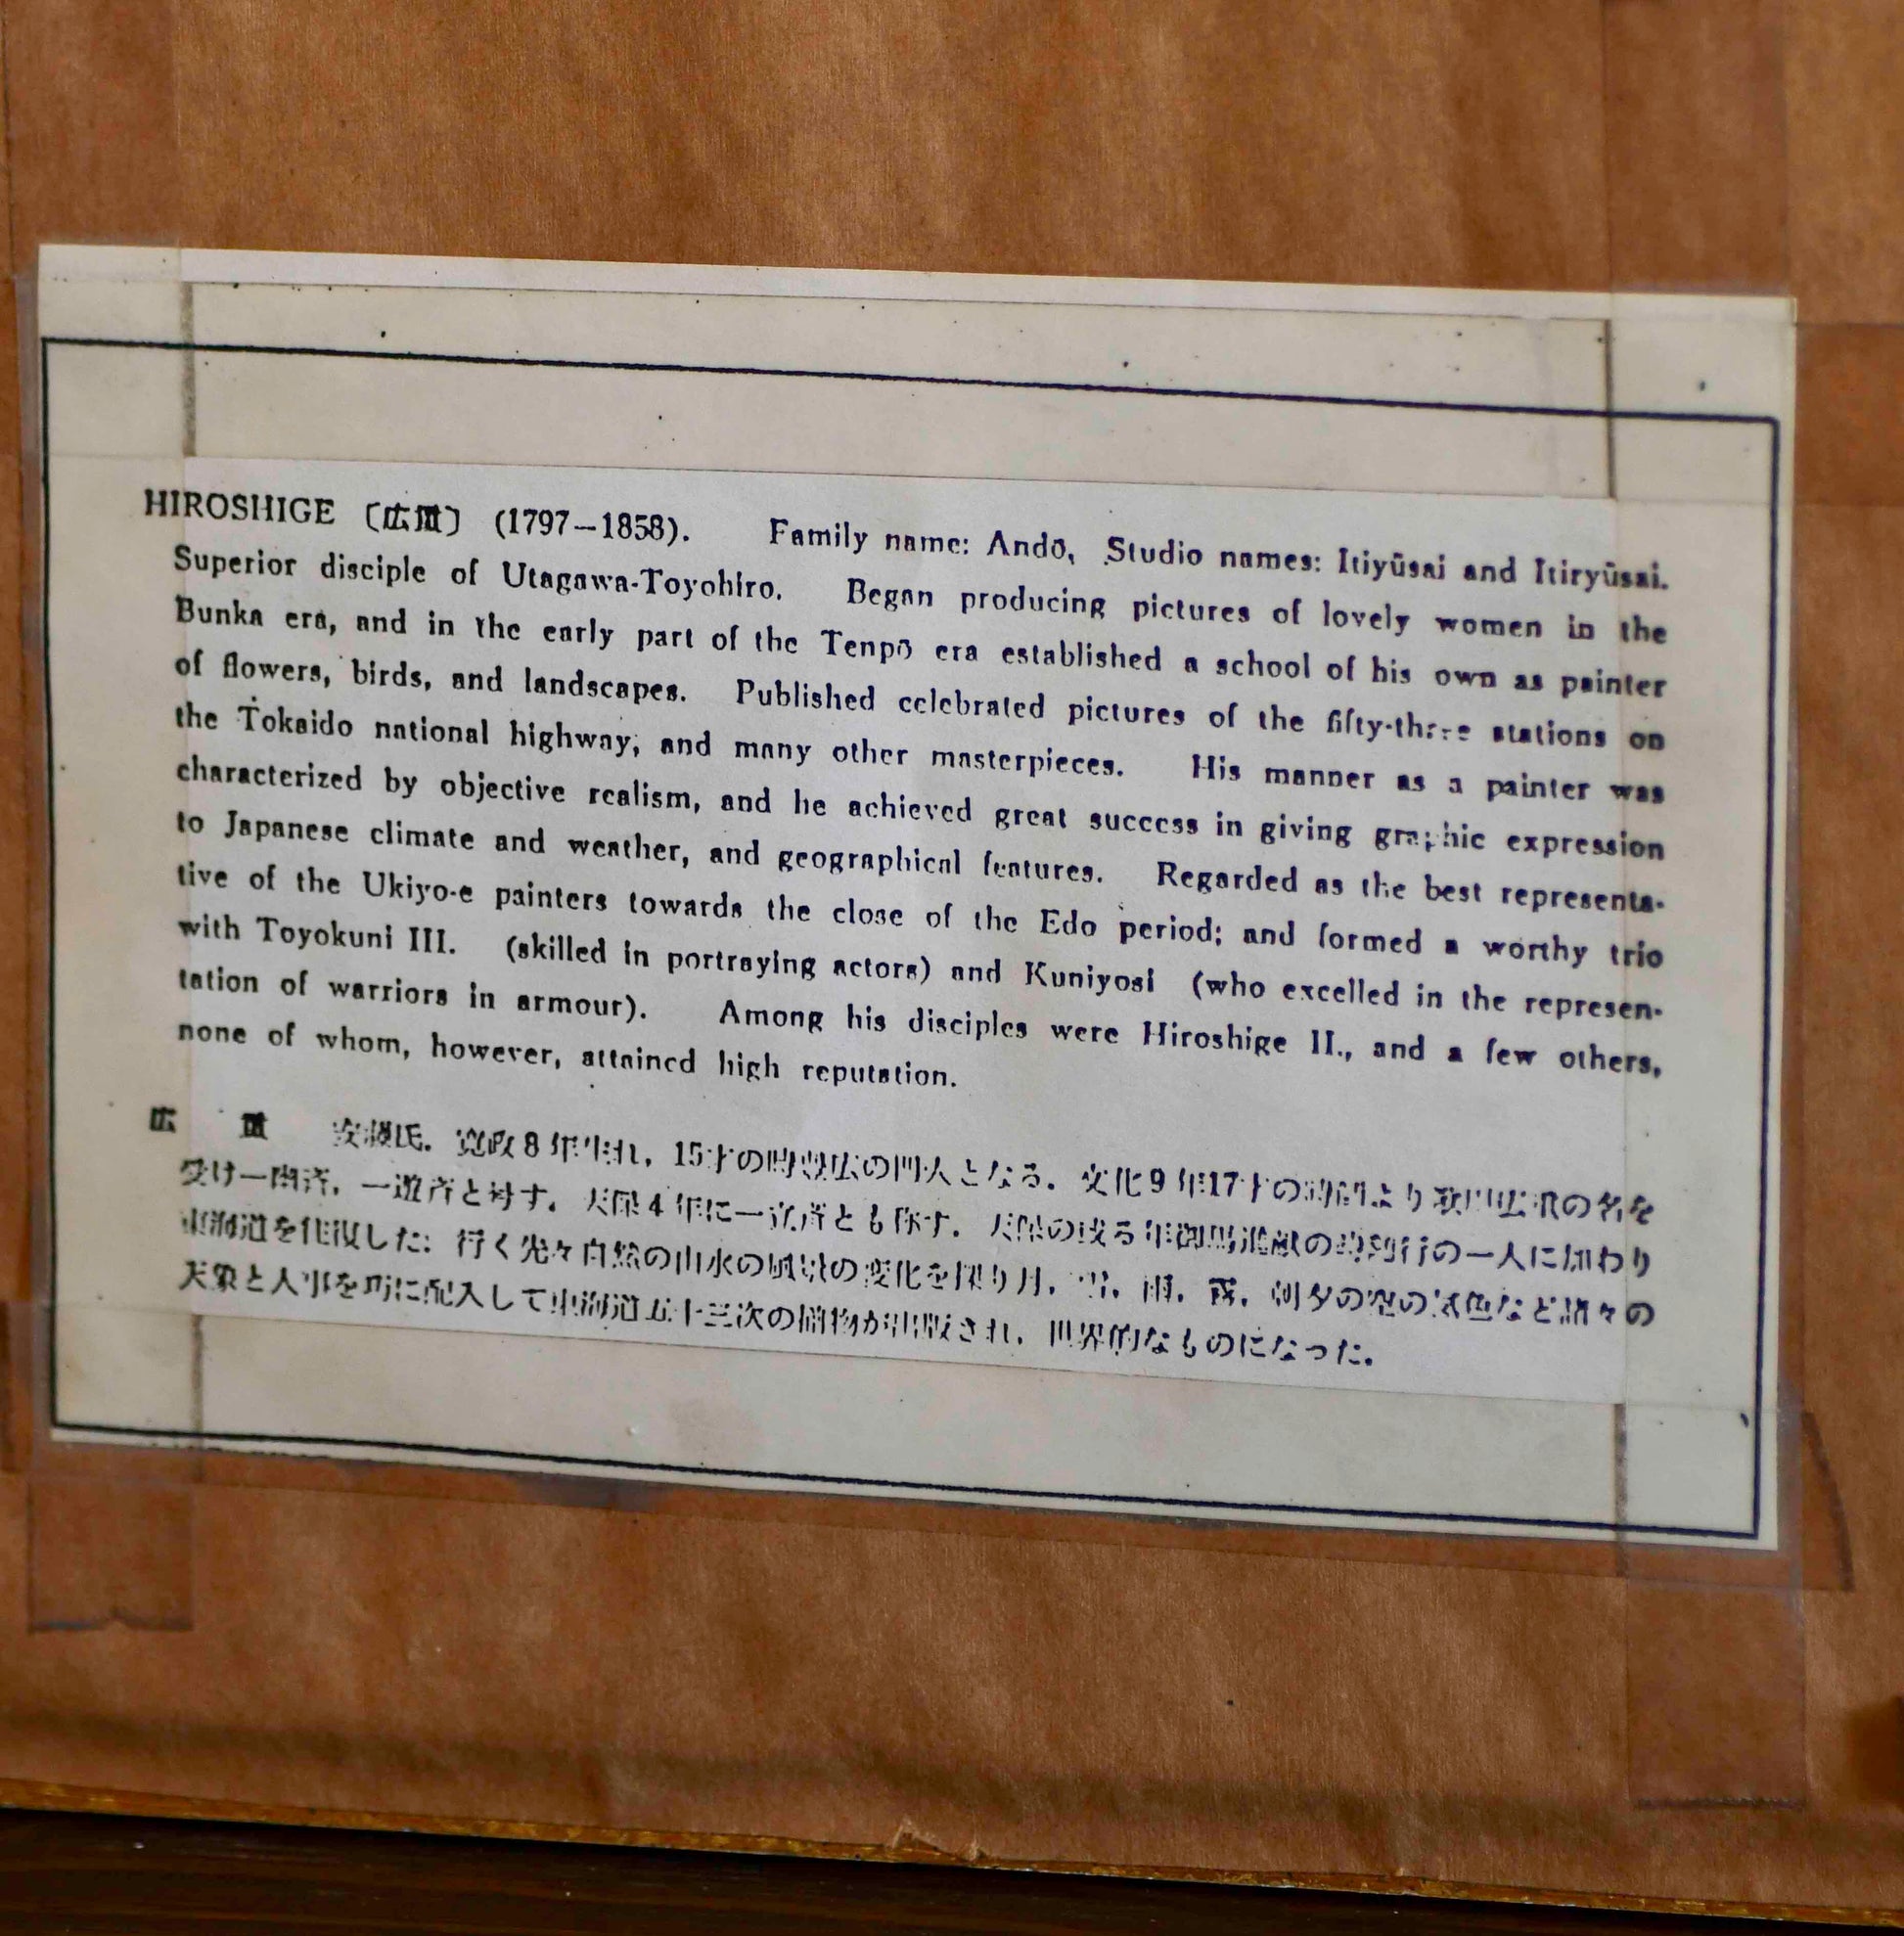 HIROSHIGE 〔広重〕 (1797–1858). Family name: Andō, Studio names: Itiyūsai and Itiryūsai.
Superior disciple of Utagawa-Toyohiro. Began producing pictures of lovely women in the
Bunka era, and in the early part of the Tenpō era established a school of his own as painter
of flowers, birds, and landscapes. Published celebrated pictures of the fifty-three stations on
the Tokaido national highway, and many other masterpieces. His manner as a painter was
characterized by objective realism, and he achieved great success in giving graphic expression
to Japanese climate and weather, and geographical features. Regarded as the best representa-
tive of the Ukiyo-e painters towards the close of the Edo period; and formed a worthy trio
with Toyokuni III. (skilled in portraying actors) and Kuniyosi (who excelled in the represen-
tation of warriors in armour). Among his disciples were Hiroshige II., and a few others,
none of whom, however, attained high reputation.
広 重 安藤氏. 寛政8年生れ, 15才の時豊広の門人となる. 文化9年17才の時師より歌川広重の名を
受け一幽斉, 一遊斉と号す. 天保4年に一立斉とも称す. 天保の或る年御馬進献の行の一人に加わり
東海道を往復した: 行く先々自然の山水の風景の変化を探り月, 雪, 雨, 霧, 朝夕の空の気色など諸々の
天象と人事を巧に配入して東海道五十三次の続物が出版され, 世界的なものになった.